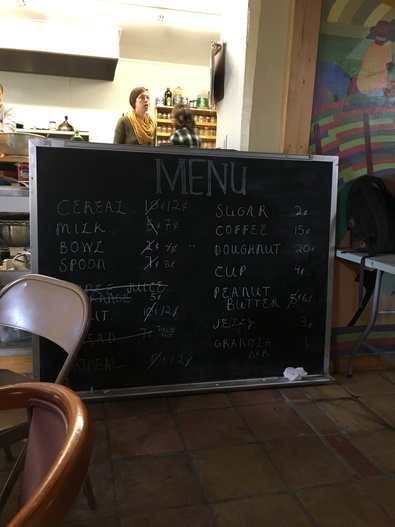 MENU
CEREAL 12¢
MILK 7¢
BOWL 4¢
SPOON 3¢
JUICE
ORANGE 5¢
12¢
7¢ SOLD
12¢
SUGAR 2¢
COFFEE 15¢
DOUGHNUT 20¢
CUP 4¢
PEANUT
BUTTER 6¢
JELLY 3¢
GRANOLA
BAR